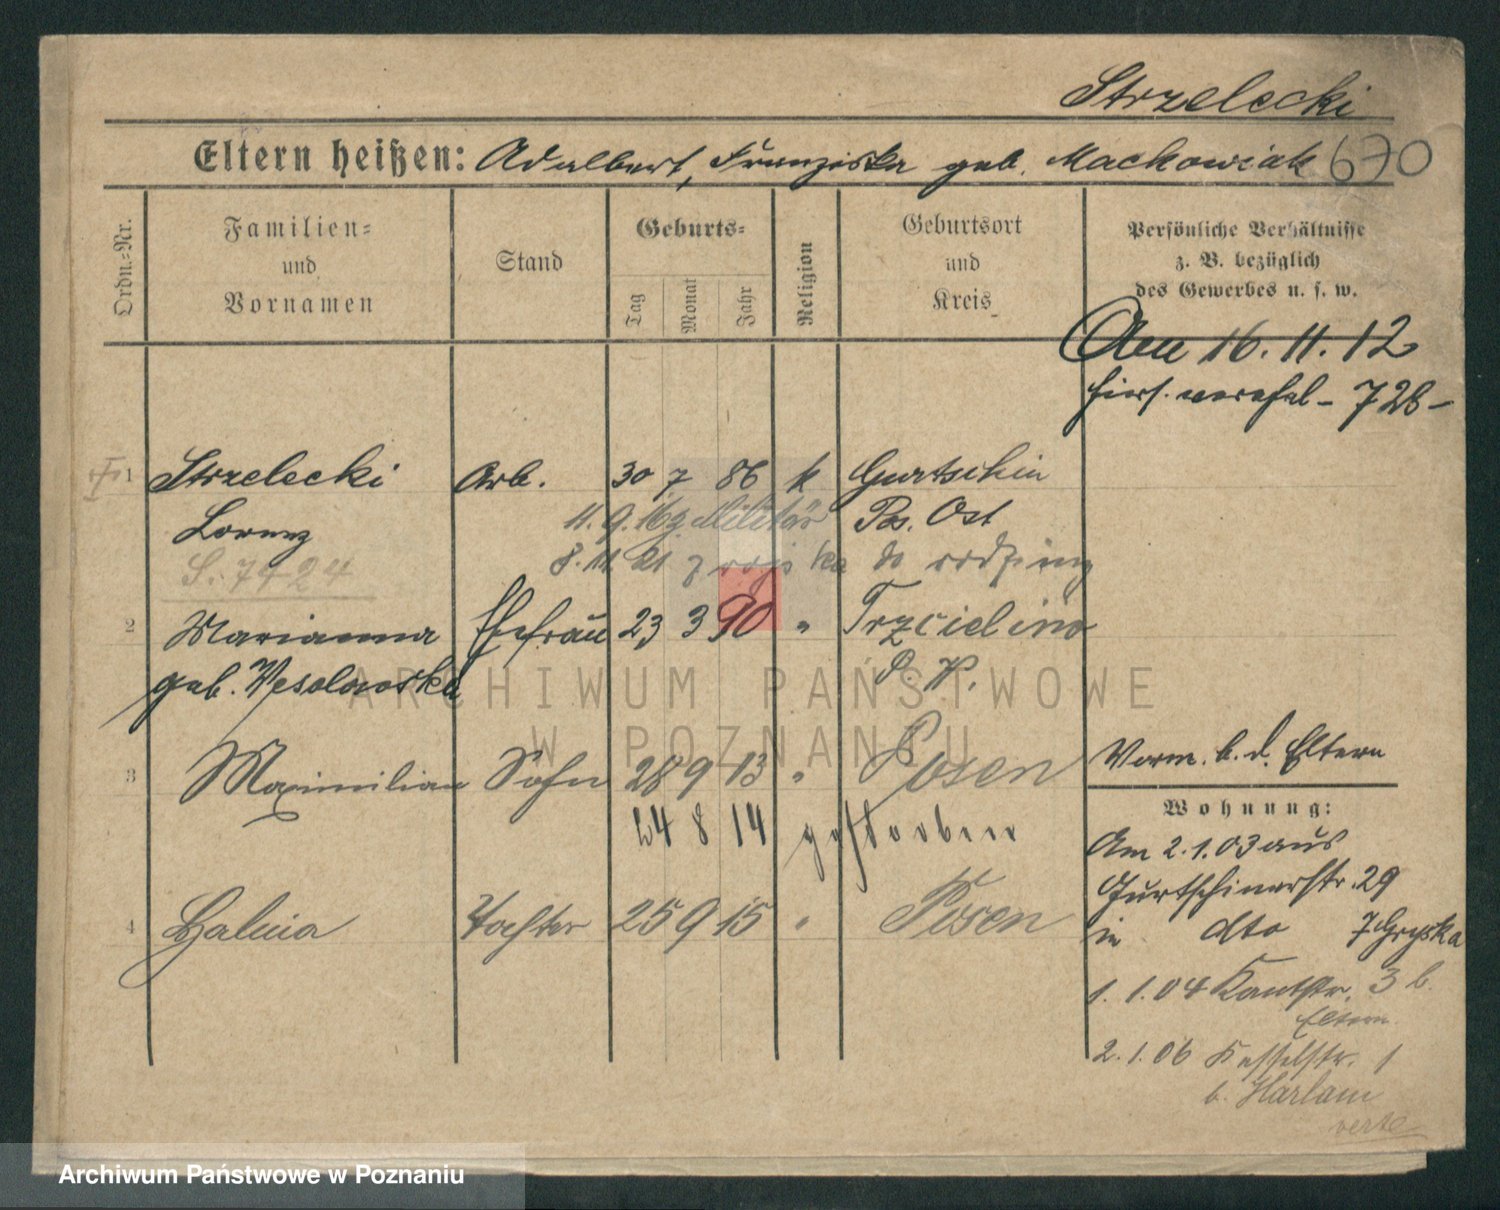 Strzelecki
Eltern heißen: Adalbert, Franziska geb. Mackowiak 670
Ordn.-Nr.
Familien- und Vornamen
Stand
Geburts-
Tag
Monat
Jahr
Religion
Geburtsort und Kreis
Persönliche Verhältnisse
z. B. bezüglich
des Gewerbes u. s. w.
Am 16.11.12
728-
1 Strzelecki Arb. 30 7 86 k Gurtschin
Lorenz 11.9.16 z Militär Pos. Ost
S. 7424 8.11.21 z wojska do rodziny
2 Marianna Ehefrau 23 3 90 " Trzcielino
geb. Wesolowska P. W.
3 Maximilian Sohn 28 9 13 " Posen
24 8 14 gestorben
4 Halina Tochter 25 9 15 " Posen
Vorm. b. d. Eltern
Wohnung:
Am 2.1.03 aus
Gurtschinerstr. 29
in dto
1.1.04 Kantstr. 3 b.
Eltern
2.1.06 Kesselstr. 1
b. Harlam
verte
ARCHIWUM PAŃSTWOWE
W POZNANIU
Archiwum Państwowe w Poznaniu